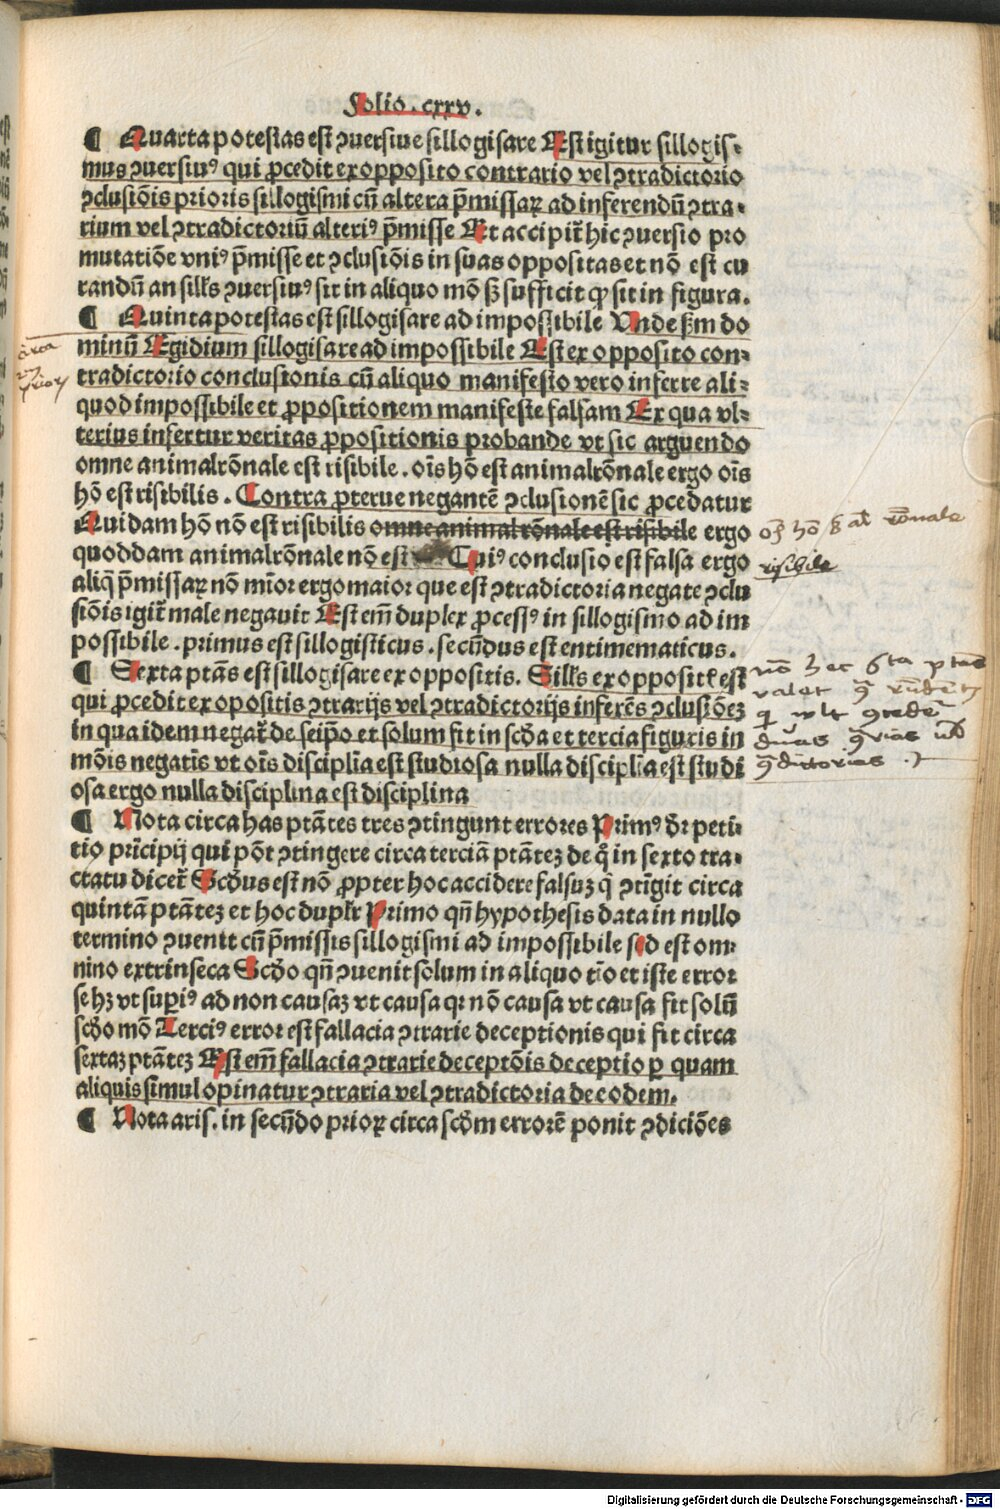 Folio. cxxv.
¶ Quarta potestas est ꝯuersiue sillogisare Est igitur sillogis⸗
mus ꝯuersiuꝰ qui ꝓcedit ex opposito contrario vel ꝯtradictorio
ꝯclusiõis prioris sillogismi cũ altera p̃missaꝝ ad inferendũ ꝯtra⸗
rium vel ꝯtradictoriũ alteriꝰ p̃misse Et accipit᷑ hic ꝯuersio pro
mutatiõe vniꝰ p̃misse et ꝯclusiõis in suas oppositas et nõ est cu
randũ an sill’s ꝯuersiuꝰ sit in aliquo mõ sꝫ sufficit ꝙ sit in figura.
¶ Quinta potestas est sillogisare ad impossibile Unde ẜm do
minũ Egidium sillogisare ad impossibile Est ex opposito con⸗
tradictorio conclusionis cũ aliquo manifesto vero inferre ali⸗
quod impossibile et ꝓpositionem manifeste falsam Ex qua vl⸗
terius infertur veritas ꝓpositionis probande vt sic arguendo
omne animal rõnale est risibile. oĩs hõ est animal rõnale ergo oĩs
hõ est risibilis. Contra ꝓterue negantẽ ꝯclusionẽ sic ꝓcedatur
Quidam hõ nõ est risibilis omne animal rõnale est risibile ergo
quoddam animal rõnale nõ est Cuiꝰ conclusio est falsa ergo
aliq̃ p̃missaꝝ nõ mĩor ergo maior que est ꝯtradictoria negate ꝯclu
siõis igit᷑ male negauit Est em̃ duplex ꝓcessꝰ in sillogismo ad im
possibile. primus est sillogisticus. secũdus est entimematicus.
¶ Sexta ptãs est sillogisare ex oppositis. Sill’s ex opposit̃ est
qui ꝓcedit ex opositis ꝯtrarijs vel ꝯtradictorijs inferẽs ꝯclusiõeꝫ
in qua idem negat᷑ de seip̃o et solum fit in sc̃ða et tercia figuris in
mõis negatĩs vt oĩs disciplĩa est studiosa nulla disciplĩa est studi
osa ergo nulla disciplina est disciplina
¶ Nota circa has ptãtes tres ꝯtingunt errores Primꝰ dr̃ peti⸗
tio prĩcipij qui põt ꝯtingere circa terciã ptãteꝫ de q̃ in sexto tra⸗
ctatu dicet᷑ Sc̃ðus est nõ ꝓpter hoc accidere falsuꝫ q̃ ꝯtĩgit circa
quintã ptãteꝫ et hoc duplr̃ Primo qñ hypothesis data in nullo
termino ꝯuenit cũ p̃missis sillogismi ad impossibile sed est om⸗
nino extrinseca Sc̃ðo qñ ꝯuenit solum in aliquo tĩo et iste error
se hꝫ vt supiꝰ ad non causaꝫ vt causa qꝛ nõ causa vt causa fit solũ
sc̃ðo mõ Terciꝰ error est fallacia ꝯtrarie deceptionis qui fit circa
sextaꝫ ptãteꝫ Est em̃ fallacia ꝯtrarie deceptõis deceptio ꝑ quam
aliquis simul opinatur ꝯtraria vel ꝯtradictoria de eodem.
¶ Nota aris. in secũdo prioꝝ circa sc̃ðm errorẽ ponit ꝯdiciões
risibile
Digitalisierung gefördert durch die Deutsche Forschungsgemeinschaft - DFG